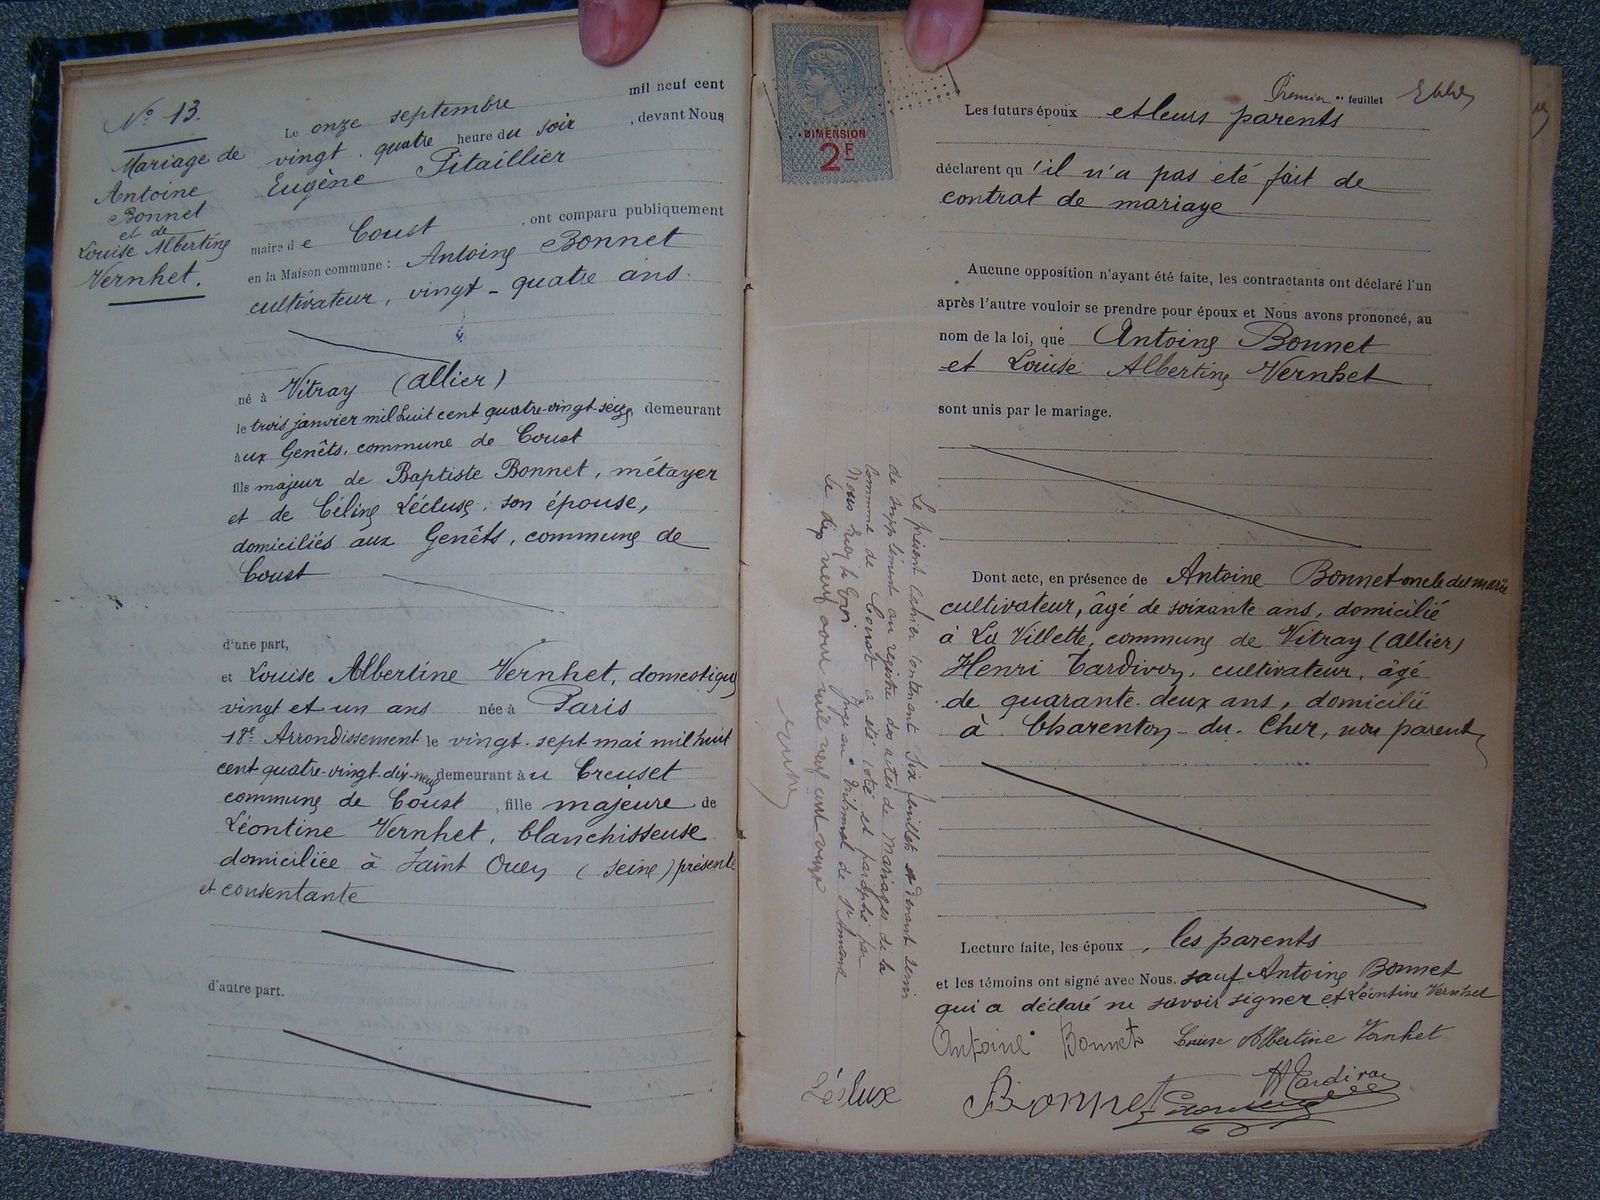 N° 13.
Mariage de
Antoine
Bonnet
et de
Louise Albertine
Vernhet.
mil neuf cent
Le onze septembre
vingt-quatre heure du soir, devant Nous
Eugène Pitaillier
maire de Coust, ont comparu publiquement
en la Maison commune : Antoine Bonnet
cultivateur, vingt-quatre ans
né à Vitray (Allier)
le trois janvier mil huit cent quatre-vingt-seize demeurant
aux Genêts, commune de Coust
fils majeur de Baptiste Bonnet, métayer
et de Céline Lécluse, son épouse,
domiciliés aux Genêts, commune de
Coust
d'une part,
et Louise Albertine Vernhet, domestique
vingt et un ans née à Paris
18e Arrondissement le vingt-sept mai mil huit
cent quatre-vingt-dix-neuf demeurant au Creuset
commune de Coust, fille majeure de
Léontine Vernhet, blanchisseuse
domiciliée à Saint Ouen (Seine) présente
et consentante
d'autre part.
DIMENSION
2F
Premier feuillet
Les futurs époux et leurs parents
déclarent qu'il n'a pas été fait de
contrat de mariage
Aucune opposition n'ayant été faite, les contractants ont déclaré l'un
après l'autre vouloir se prendre pour époux et Nous avons prononcé, au
nom de la loi, que Antoine Bonnet
et Louise Albertine Vernhet
sont unis par le mariage.
Le présent cahier contenant six feuillets et devant servir
de supplément au registre des actes de Mariages de la
Commune de Coust a été coté et paraphé par
Nous Juge au Tribunal de St Amand
Le dix neuf avril mil neuf cent vingt
Dont acte, en présence de Antoine Bonnet oncle du marié
cultivateur, âgé de soixante ans, domicilié
à La Villette, commune de Vitray (Allier)
Henri Tardivon, cultivateur, âgé
de quarante-deux ans, domicilié
à Charenton-du-Cher, non parent
Lecture faite, les époux, les parents
et les témoins ont signé avec Nous. sauf Antoine Bonnet
qui a déclaré ne savoir signer et Léontine Vernhet
Antoine Bonnet Louise Albertine Vernhet
Léslux Bonnet HTardivon